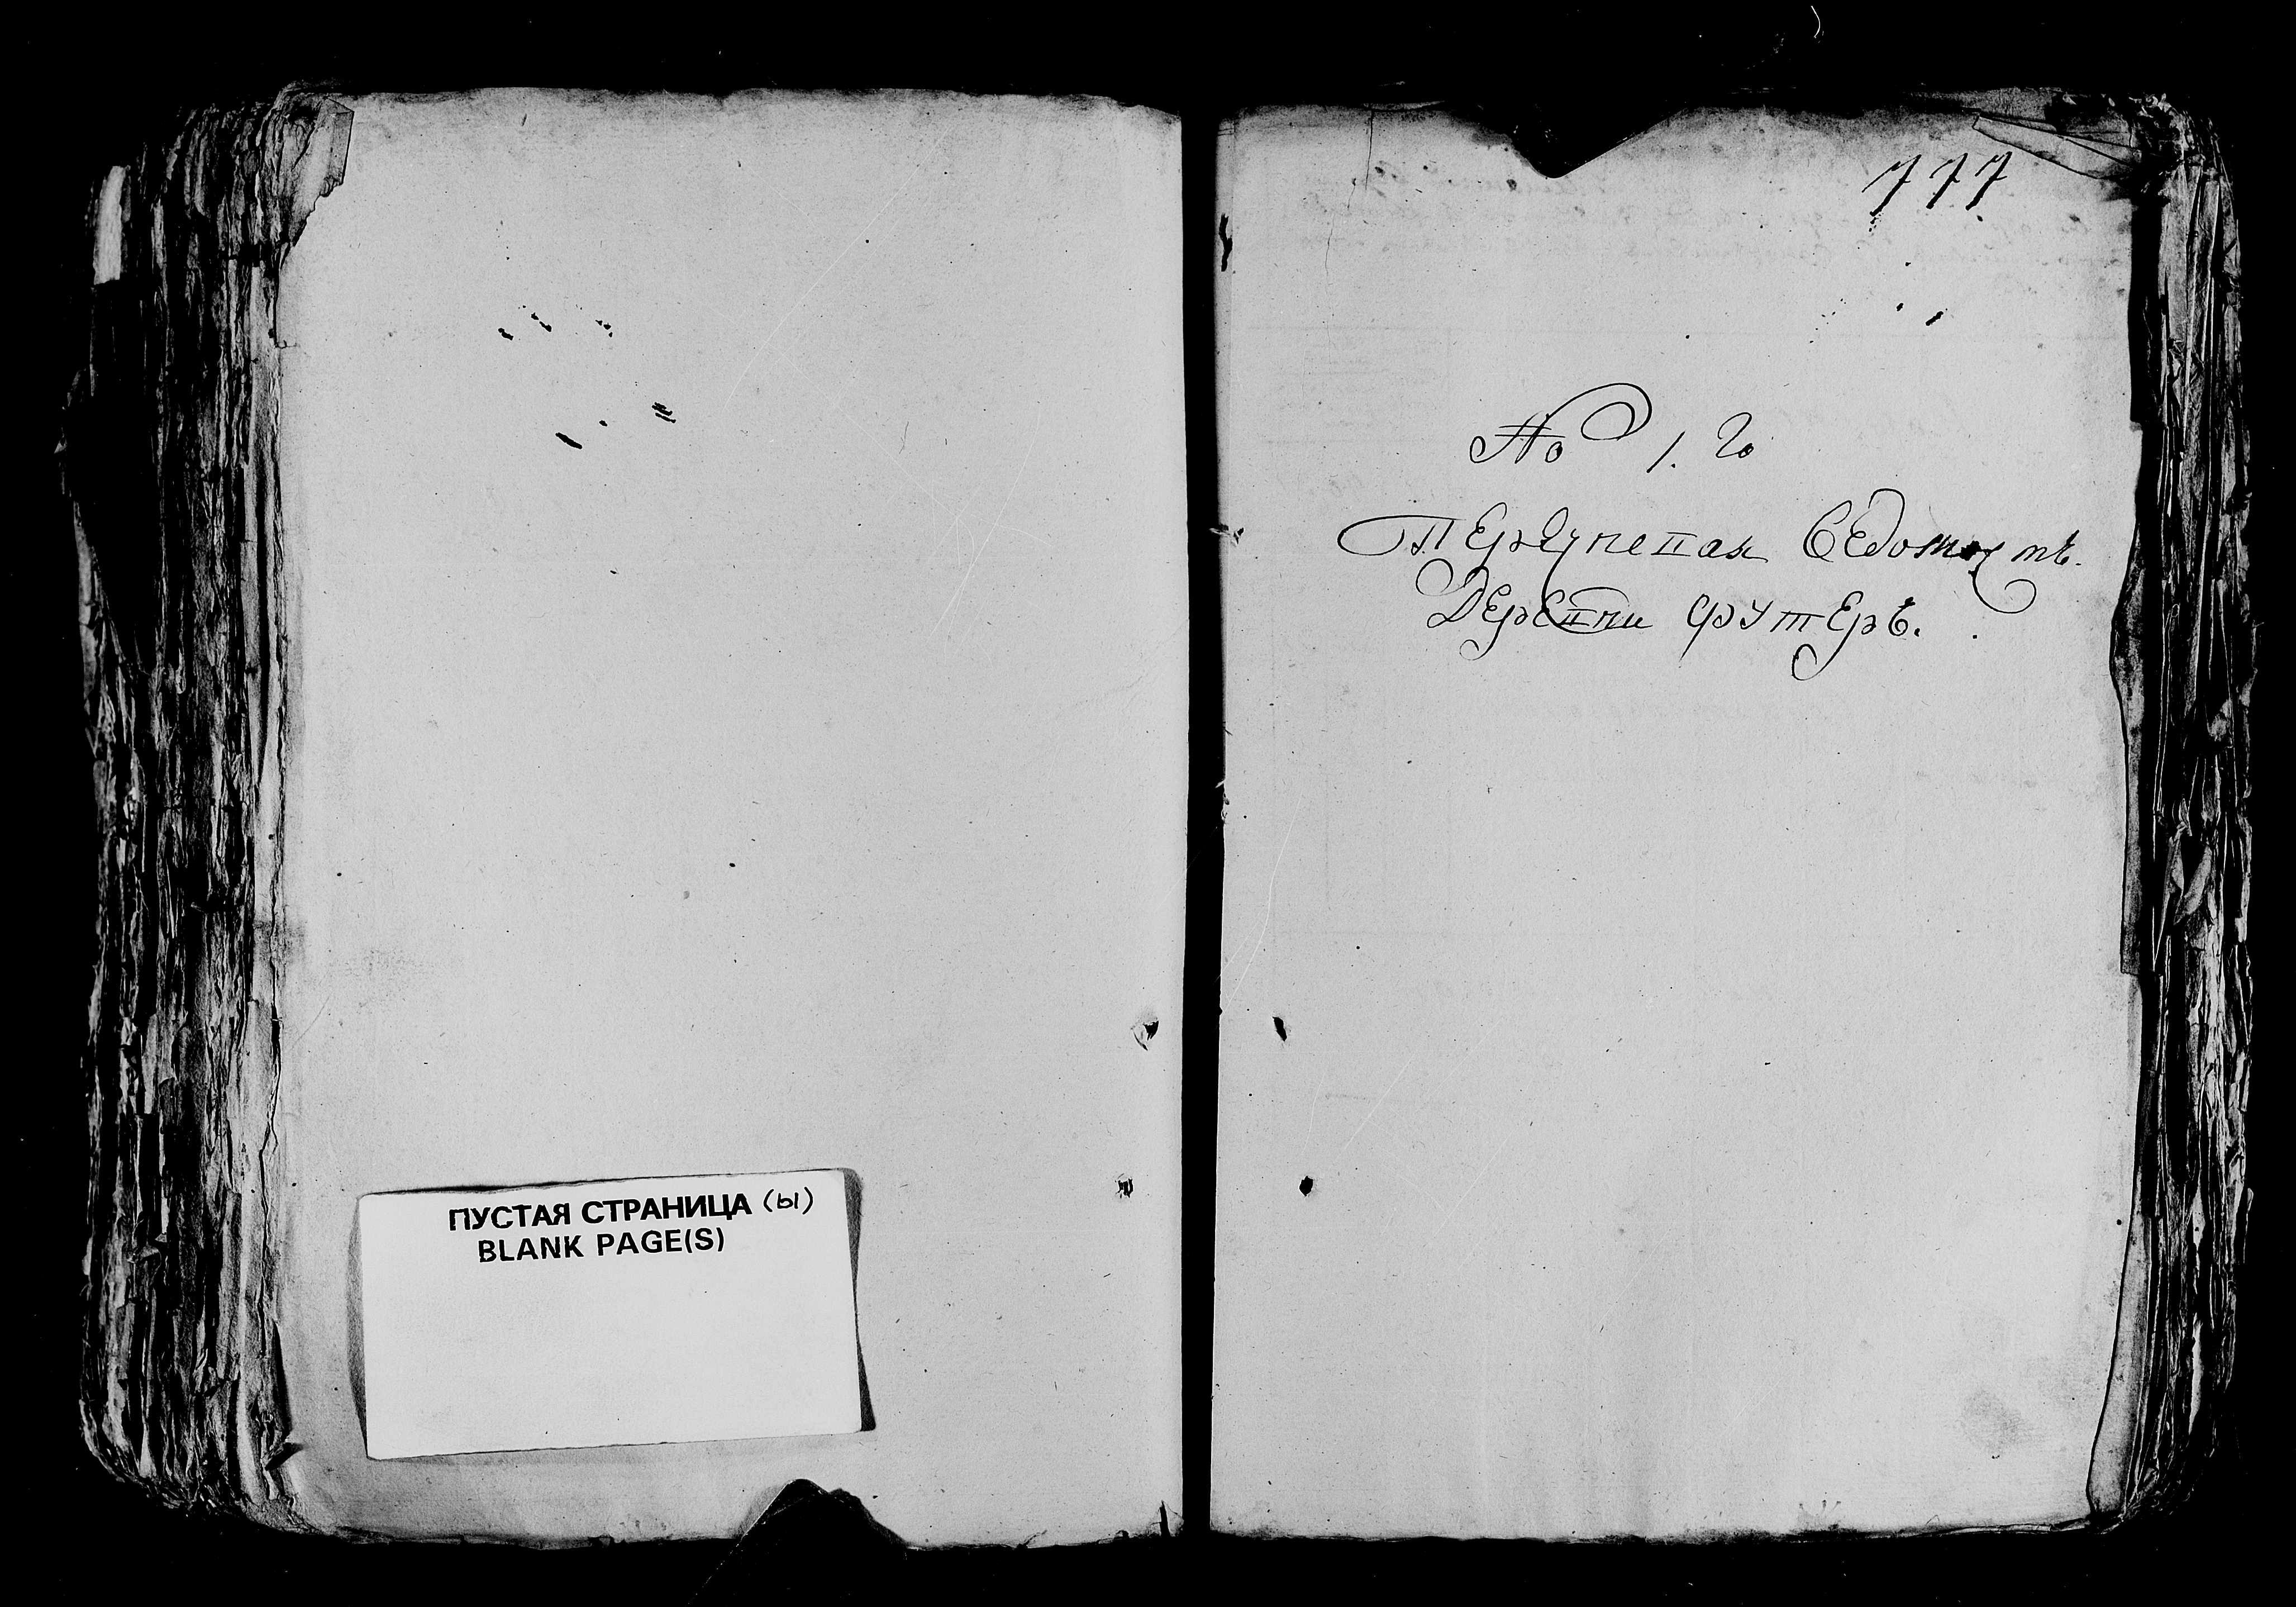 ПУСТАЯ СТРАНИЦА (ы)
BLANK PAGE(S)
777
No 1. го
Перечневая Ведомость.
Деревни Футеръ.